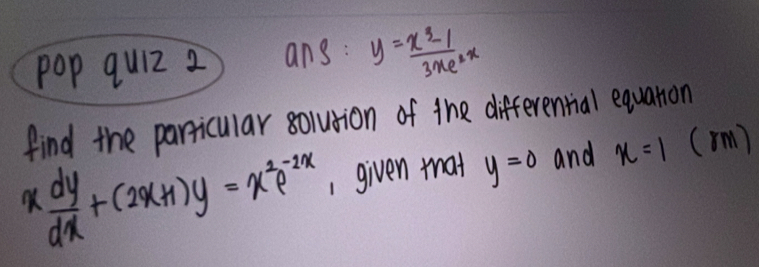 pop quiz 2
ans : y = x³-1 / 3xe²ˣ
find the particular solution of the differential equation
x dy/dx + (2x+1)y = x²e⁻²ˣ , given that y=0 and x=1 (8m)